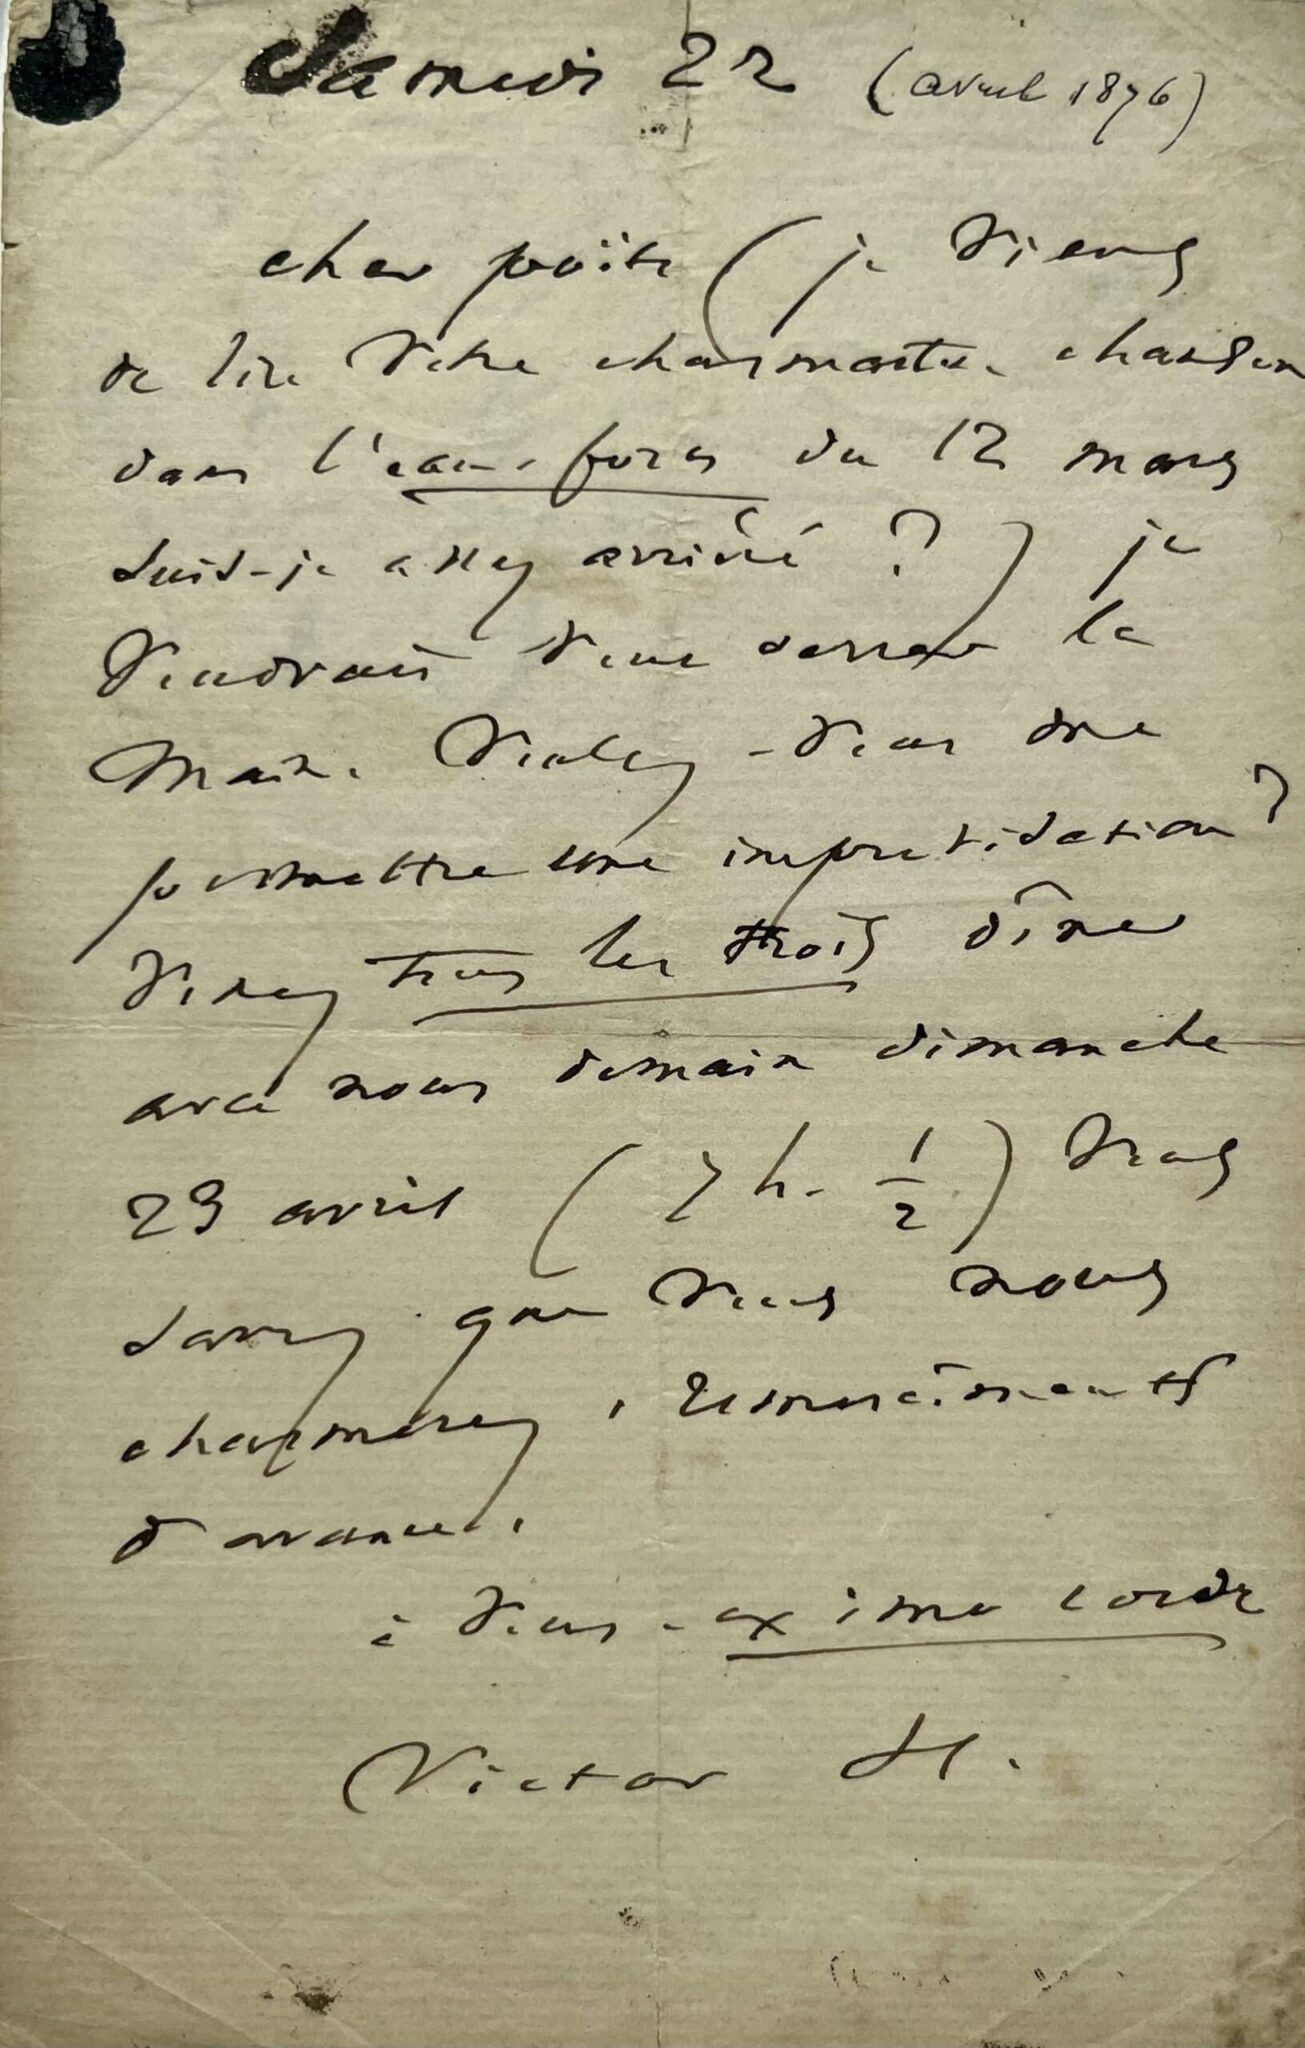 Samedi 22 (avril 1876)
cher poëte (je viens
de lire votre charmante chanson
dans l'eau-forte du 12 mars
suis-je assez arriéré ?) je
voudrais vous serrer la
main. Voulez-vous me
permettre une improvisation ?
Venez tous les trois dîner
avec nous demain dimanche
23 avril (7 h. 1/2) Vous
savez que vous nous
charmerez, remerciments
d'avance.
à vous. ex imo corde
Victor H.